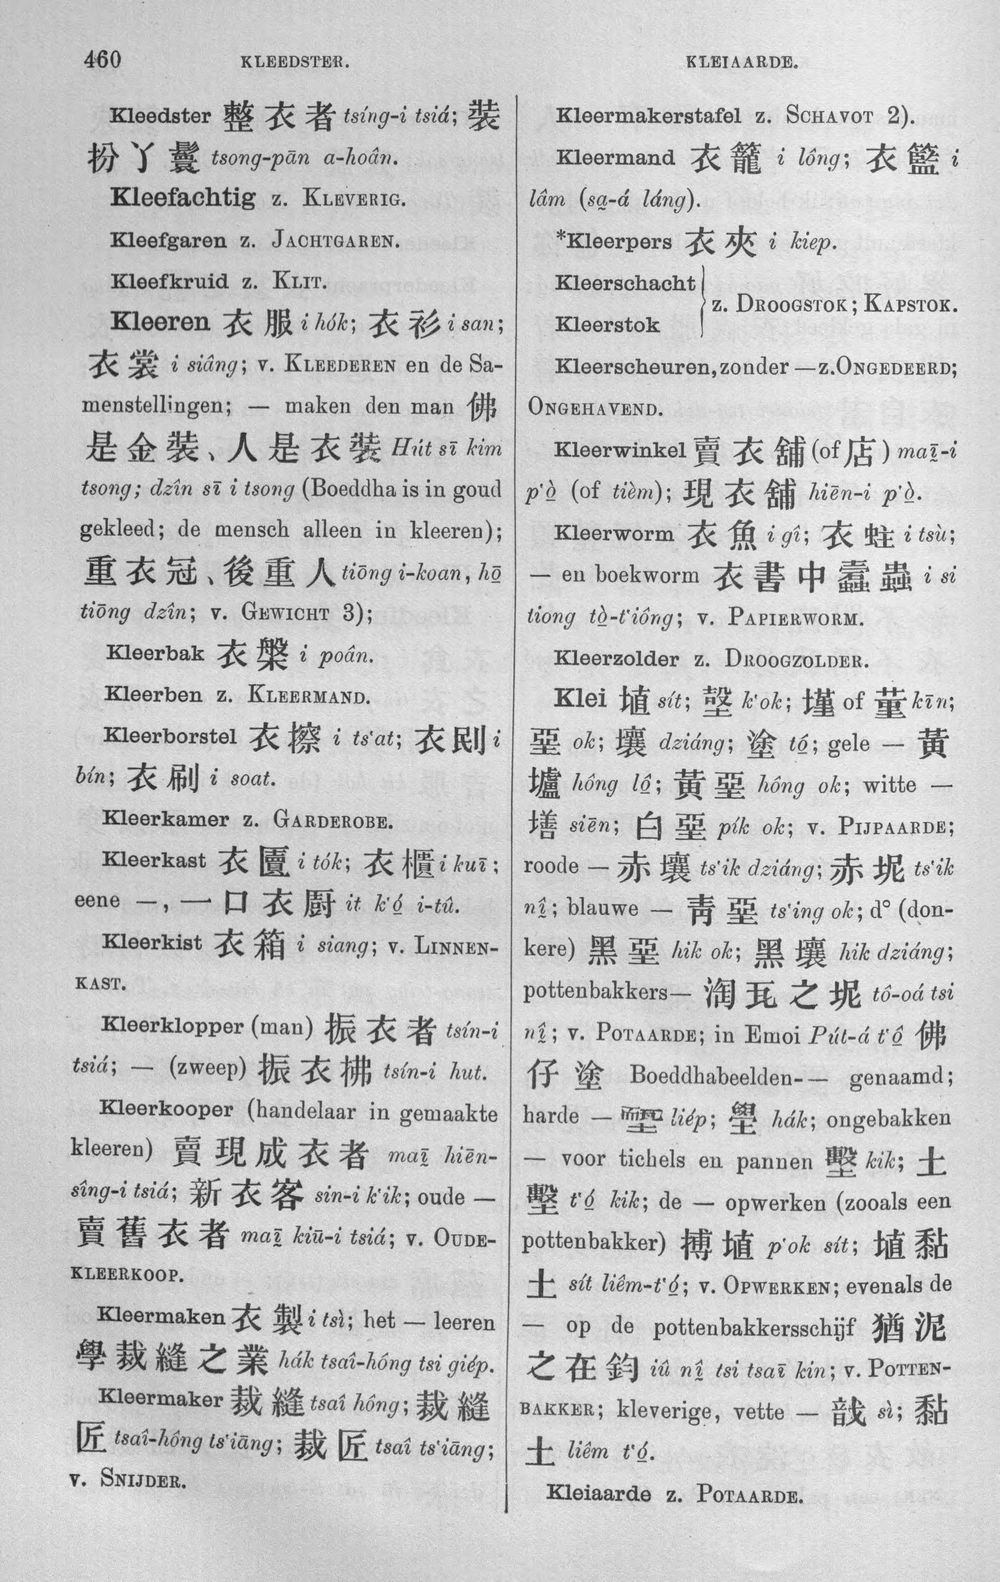 460
KLEEDSTER.
KLEIAARDE.
Kleedster 整衣者 tsíng-i tsiá; 裝
扮丫鬟 tsong-pān a-hoân.
Kleefachtig z. KLEVERIG.
Kleefgaren z. JACHTGAREN.
Kleefkruid z. KLIT.
Kleeren 衣服 i hók; 衣衫 i san;
衣裳 i siâng; v. KLEEDEREN en de Sa-
menstellingen; — maken den man 佛
是金裝、人是衣裝 Hút sī kim
tsong; dzîn sī i tsong (Boeddha is in goud
gekleed; de mensch alleen in kleeren);
重衣冠、後重人 tiōng i-koan, hō͘
tiōng dzîn; v. GEWICHT 3);
Kleerbak 衣槃 i poân.
Kleerben z. KLEERMAND.
Kleerborstel 衣擦 i ts'at; 衣刡 i
bín; 衣刷 i soat.
Kleerkamer z. GARDEROBE.
Kleerkast 衣匵 i tók; 衣櫃 i kuī;
eene —, 一口衣厨 it k'ó͘ i-tû.
Kleerkist 衣箱 i siang; v. LINNEN-
KAST.
Kleerklopper (man) 振衣者 tsín-i
tsiá; — (zweep) 振衣拂 tsín-i hut.
Kleerkooper (handelaar in gemaakte
kleeren) 賣現成衣者 maī hiēn-
sîng-i tsiá; 新衣客 sin-i k'ik; oude —
賣舊衣者 maī kiū-i tsiá; v. OUDE-
KLEERKOOP.
Kleermaken 衣製 i tsì; het — leeren
學裁縫之業 hák tsaî-hông tsi giép.
Kleermaker 裁縫 tsaî hông; 裁縫
匠 tsaî-hông ts'iāng; 裁匠 tsaî ts'iāng;
v. SNIJDER.
Kleermakerstafel z. SCHAVOT 2).
Kleermand 衣籠 i lông; 衣籃 i
lâm (sa̱-á láng).
*Kleerpers 衣夾 i kiep.
Kleerschacht
Kleerstok
z. DROOGSTOK; KAPSTOK.
Kleerscheuren, zonder — z. ONGEDEERD;
ONGEHAVEND.
Kleerwinkel 賣衣舖 (of 店) maī-i
p'ò͘ (of tièm); 現衣舖 hiēn-i p'ò͘.
Kleerworm 衣魚 i gî; 衣蛀 i tsù;
— en boekworm 衣書中蠹蟲 i si
tiong tò͘-t'iông; v. PAPIERWORM.
Kleerzolder z. DROOGZOLDER.
Klei 埴 sít; 墼 k'ok; 墐 of 堇 kīn;
堊 ok; 壤 dziáng; 塗 tô͘; gele — 黃
壚 hông lô͘; 黃堊 hông ok; witte —
墡 siēn; 白堊 pík ok; v. PIJPAARDE;
roode — 赤壤 ts'ik dziáng; 赤坭 ts'ik
nî; blauwe — 青堊 ts'ing ok; d° (don-
kere) 黑堊 hik ok; 黑壤 hik dziáng;
pottenbakkers— 淘瓦之坭 tô-oá tsi
nî; v. POTAARDE; in Emoi Pút-á t'ô͘ 佛
仔塗 Boeddhabeelden-— genaamd;
harde — liép; 壆 hák; ongebakken
— voor tichels en pannen 墼 kik; 土
墼 t'ó͘ kik; de — opwerken (zooals een
pottenbakker) 搏埴 p'ok sít; 埴黏
土 sít liêm-t'ó͘; v. OPWERKEN; evenals de
— op de pottenbakkersschijf 猶泥
之在鈞 iû nî tsi tsaī kin; v. POTTEN-
BAKKER; kleverige, vette — 戠 sì; 黏
土 liêm t'ó͘.
Kleiaarde z. POTAARDE.